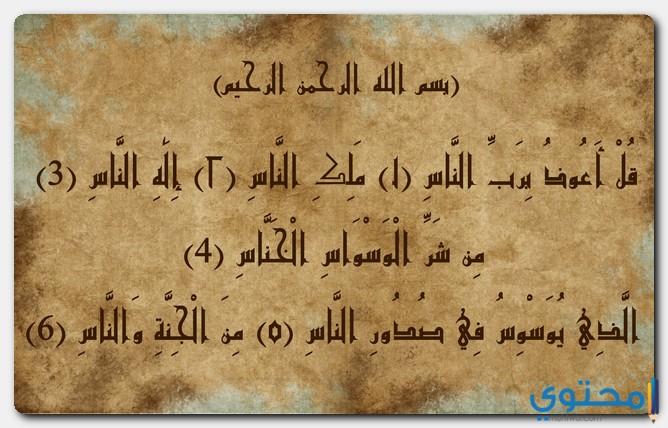 (بسم الله الرحمن الرحيم)
قُلْ أَعُوذُ بِرَبِّ النَّاسِ (١) مَلِكِ النَّاسِ (٢) إِلَٰهِ النَّاسِ (3)
مِن شَرِّ الْوَسْوَاسِ الْخَنَّاسِ (4)
الَّذِي يُوَسْوِسُ فِي صُدُورِ النَّاسِ (٥) مِنَ الْجِنَّةِ وَالنَّاسِ (6)
محتوي